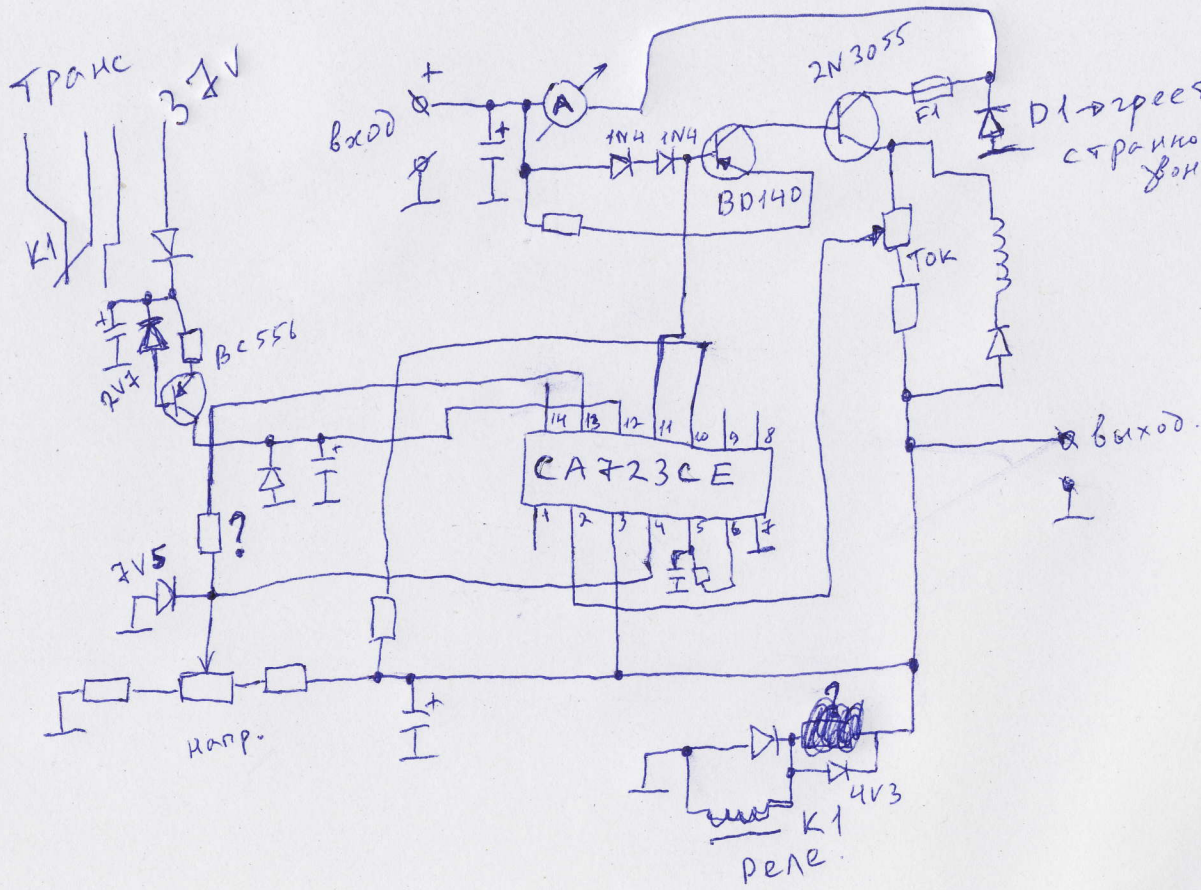 транс
37V
+
вход
+
A
1N4 1N4
BD140
2N3055
F1
D1→греет
странно
K1
+
2V7
BC556
ток
+
14 13 12 11 10 9 8
CA723CE
1 2 3 4 5 6 7
выход.
?
7V5
напр.
+
?
4V3
K1
реле.